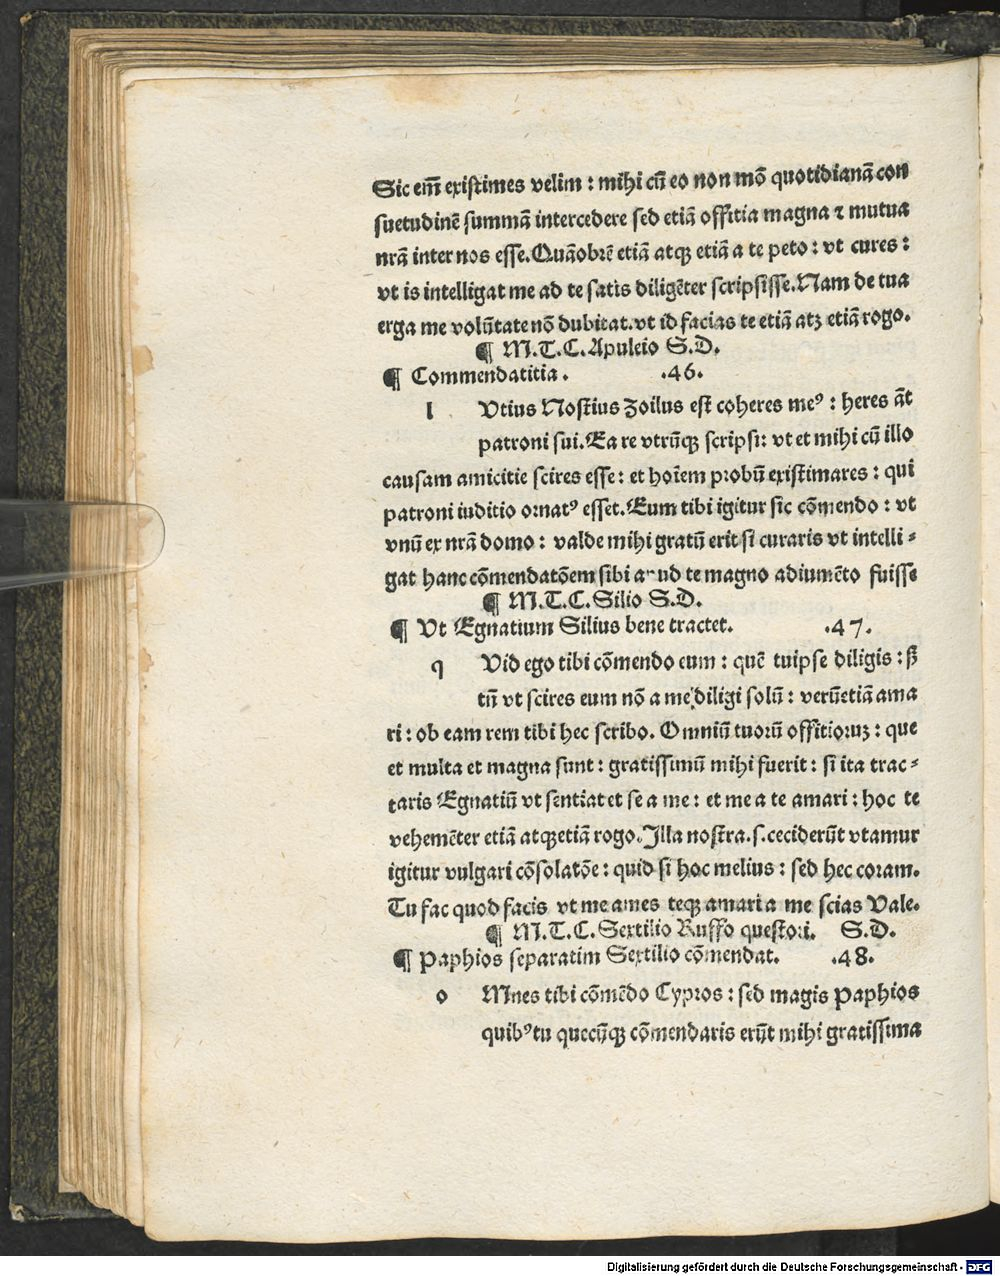 Sic em̄ existimes velim : mihi cū eo non mō quotidianā con
suetudinē summā intercedere sed etiā offitia magna ⁊ mutua
nrā inter nos esse. Quāobrē etiā atqꝫ etiā a te peto : vt cures :
vt is intelligat me ad te satis diligēter scripsisse. Nam de tua
erga me volūtate nō dubitat. vt id facias te etiā atꝫ etiā rogo.
¶ M.T.C. Apuleio S.D.
¶ Commendatitia . .46.
l Vtius Nostius Zoilus est coheres meꝰ : heres āt
patroni sui. Ea re vtrūqꝫ scripsi: vt et mihi cū illo
causam amicitie scires esse : et hoīem probū existimares : qui
patroni iuditio ornatꝰ esset. Eum tibi igitur sic cōmendo : vt
vnū ex nrā domo : valde mihi gratū erit si curaris vt intelli⸗
gat hanc cōmendatōem sibi apud te magno adiumēto fuisse
¶ M.T.C. Silio S.D.
¶ Vt Egnatium Silius bene tractet. .47.
q Vid ego tibi cōmendo eum : quē tuipse diligis : sꝫ
tn̄ vt scires eum nō a me diligi solū : verūetiā ama
ri : ob eam rem tibi hec scribo. Omniū tuorū offitioruꝫ : que
et multa et magna sunt : gratissimū mihi fuerit : si ita trac⸗
taris Egnatiū vt sentiat et se a me : et me a te amari : hoc te
vehemēter etiā atqꝫ etiā rogo. Illa nostra .s. ceciderūt vtamur
igitur vulgari cōsolatōe : quid si hoc melius : sed hec coram.
Tu fac quod facis vt me ames teqꝫ amari a me scias Vale.
¶ M.T.C. Sextilio Ruffo questori. S.D.
¶ Paphios separatim Sextilio cōmendat. .48.
o Mnes tibi cōmēdo Cypros : sed magis Paphios
quibꝰ tu quecūqꝫ cōmendaris erūt mihi gratissima
Digitalisierung gefördert durch die Deutsche Forschungsgemeinschaft - DFG